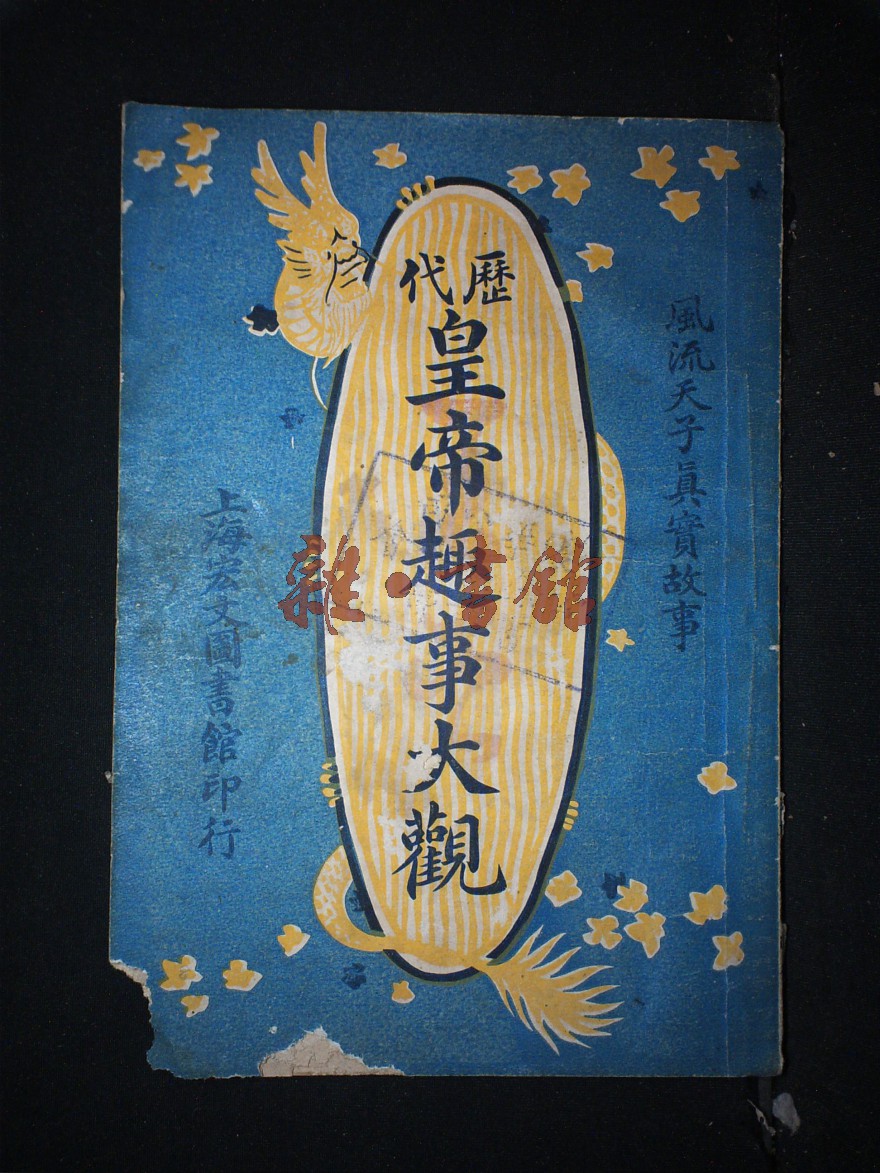 風流天子眞實故事
歷代
皇帝趣事大觀
上海宏文圖書館印行
雜·書館